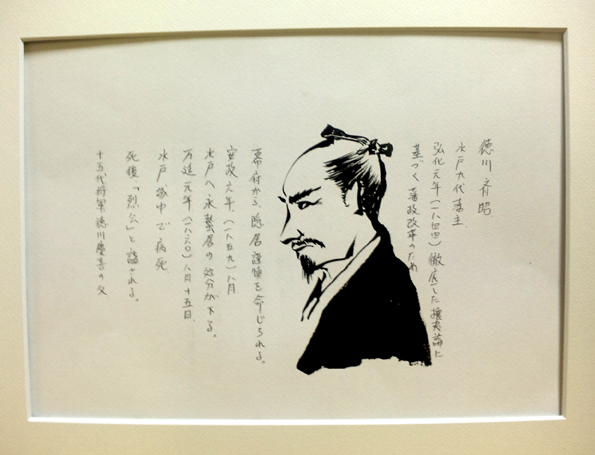 徳川 斉昭
水戸九代藩主
弘化元年(一八四四)徹底した攘夷論に
基づく藩政改革のため
幕府から、隠居謹慎を命じられる。
安政元年、(一八五九)八月
水戸へ永蟄居の処分が下る。
万延元年(一八六〇)八月十五日、
水戸城中で病死
死後「烈公」と諡される。
十五代将軍徳川慶喜の父